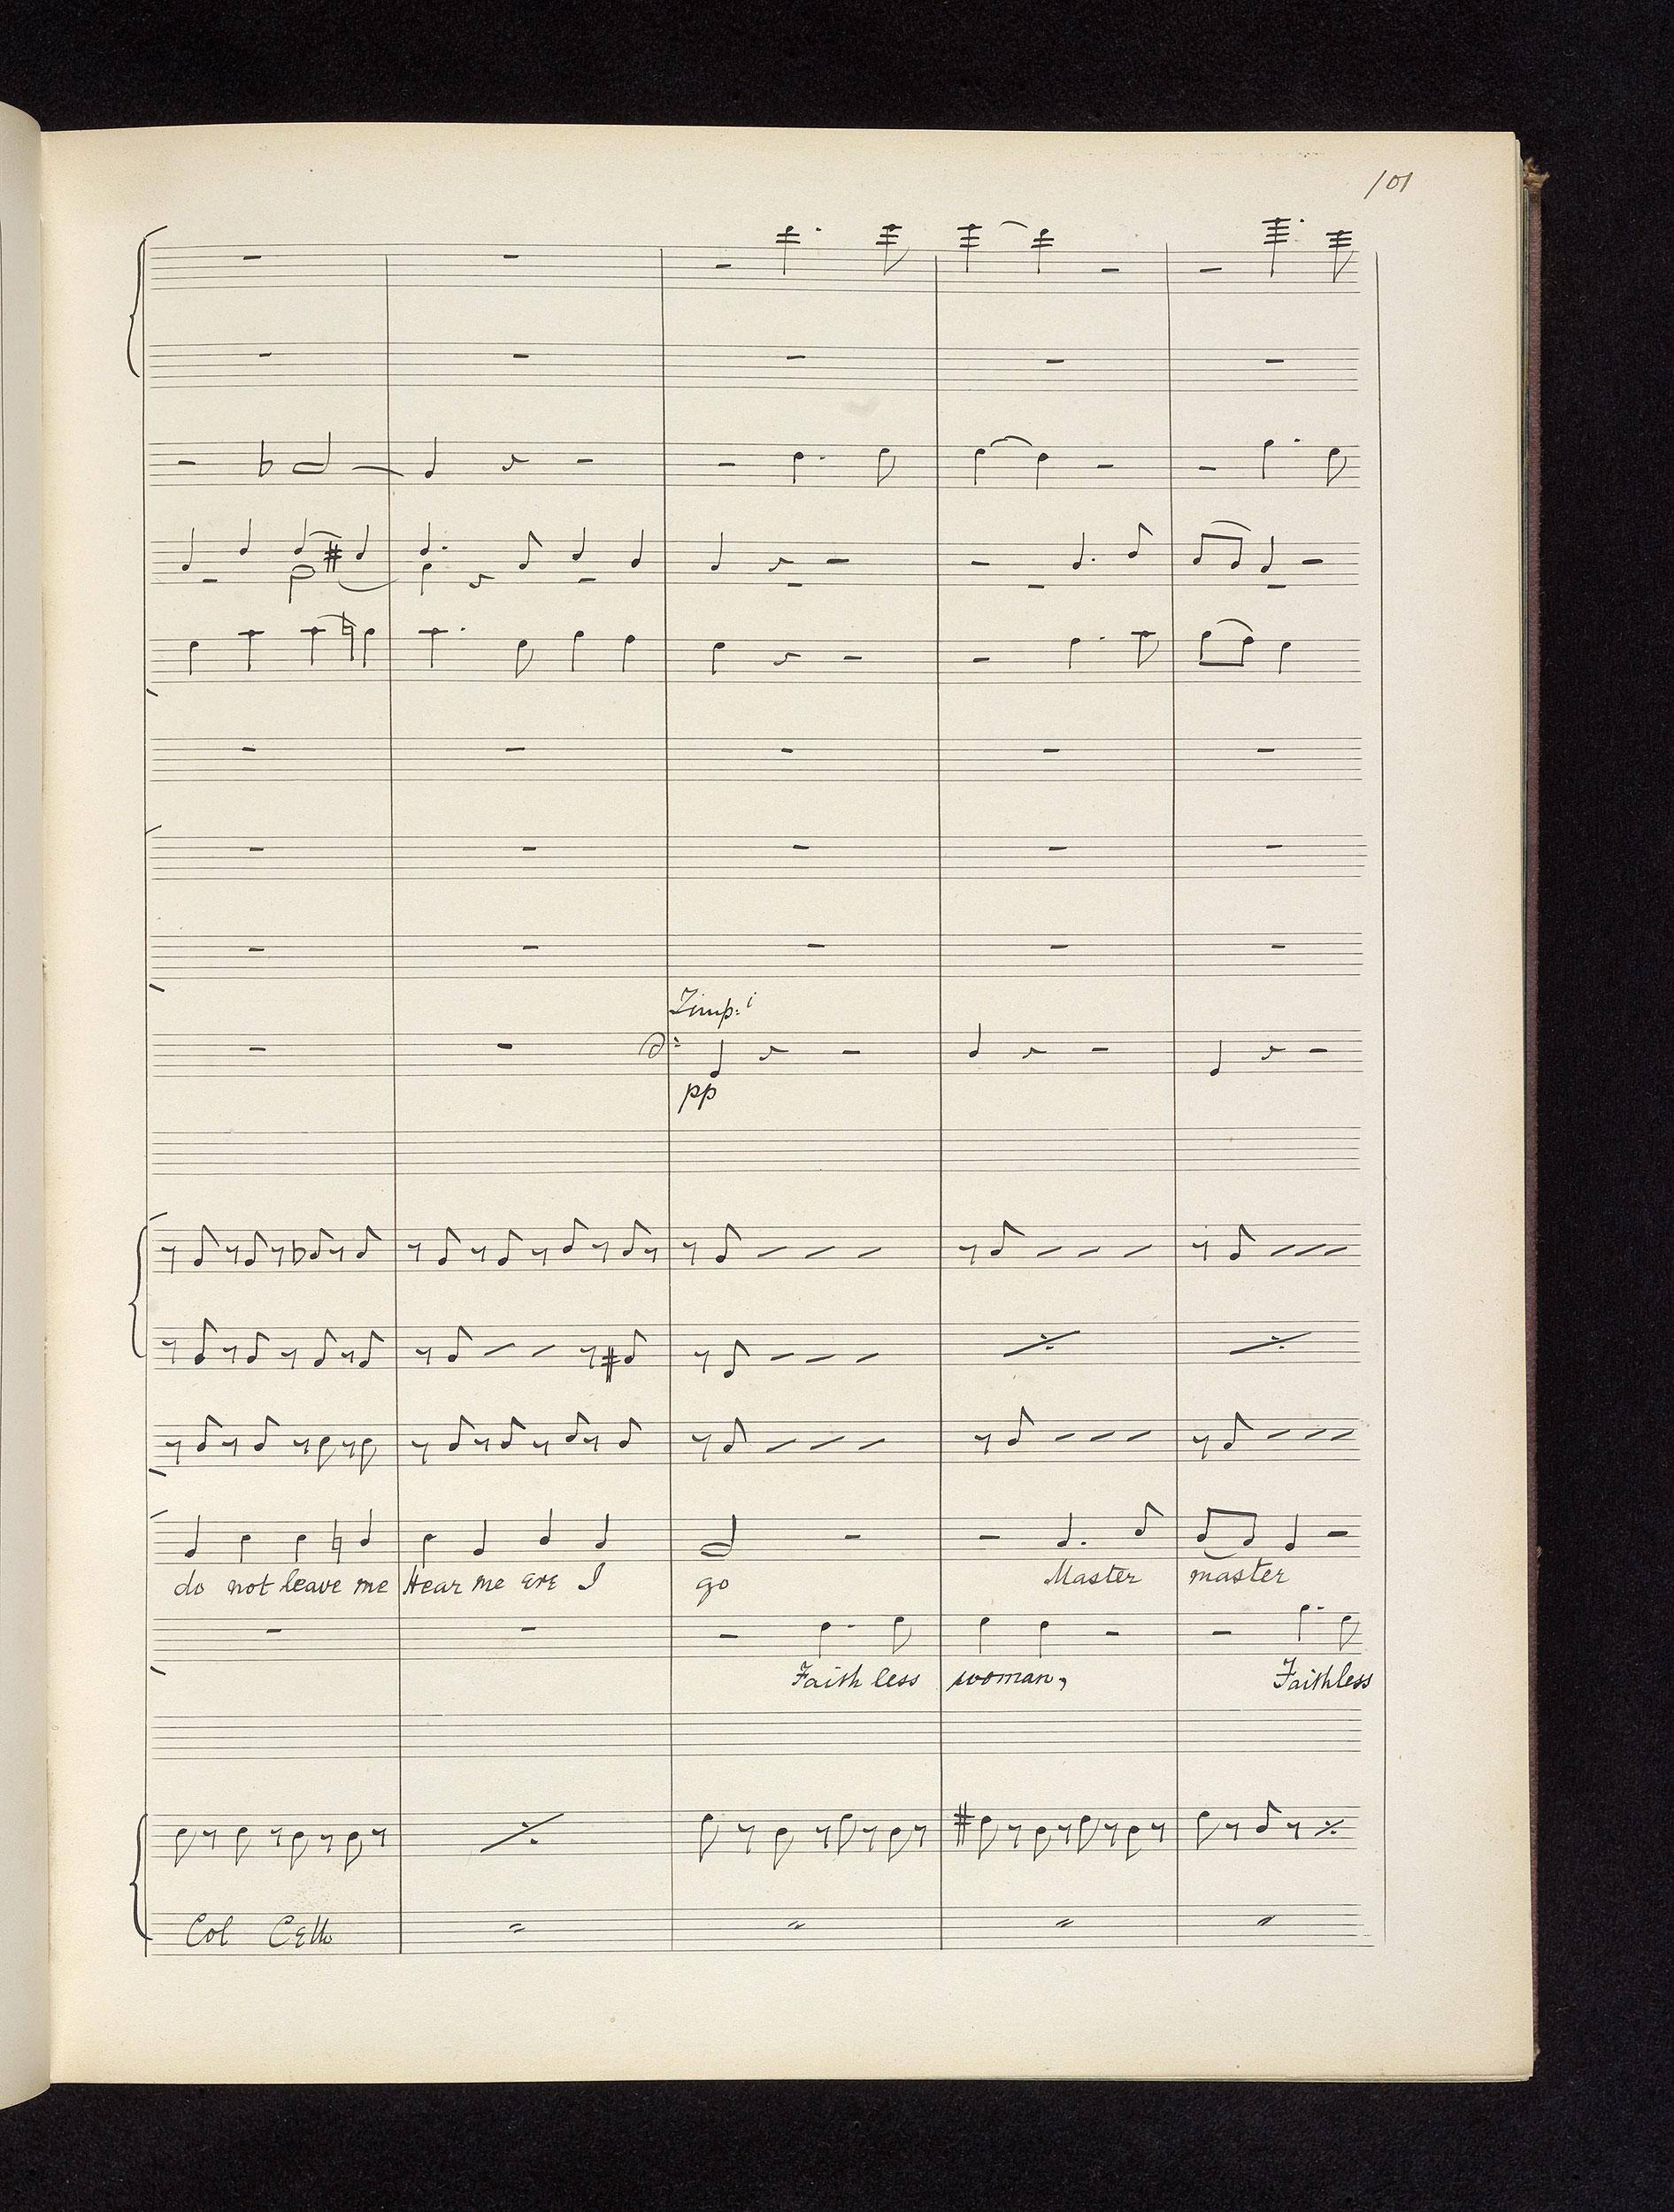 101
Timp:i
pp
do not leave me Hear me ere I go Master master
Faith less woman, Faithless
Col Cello